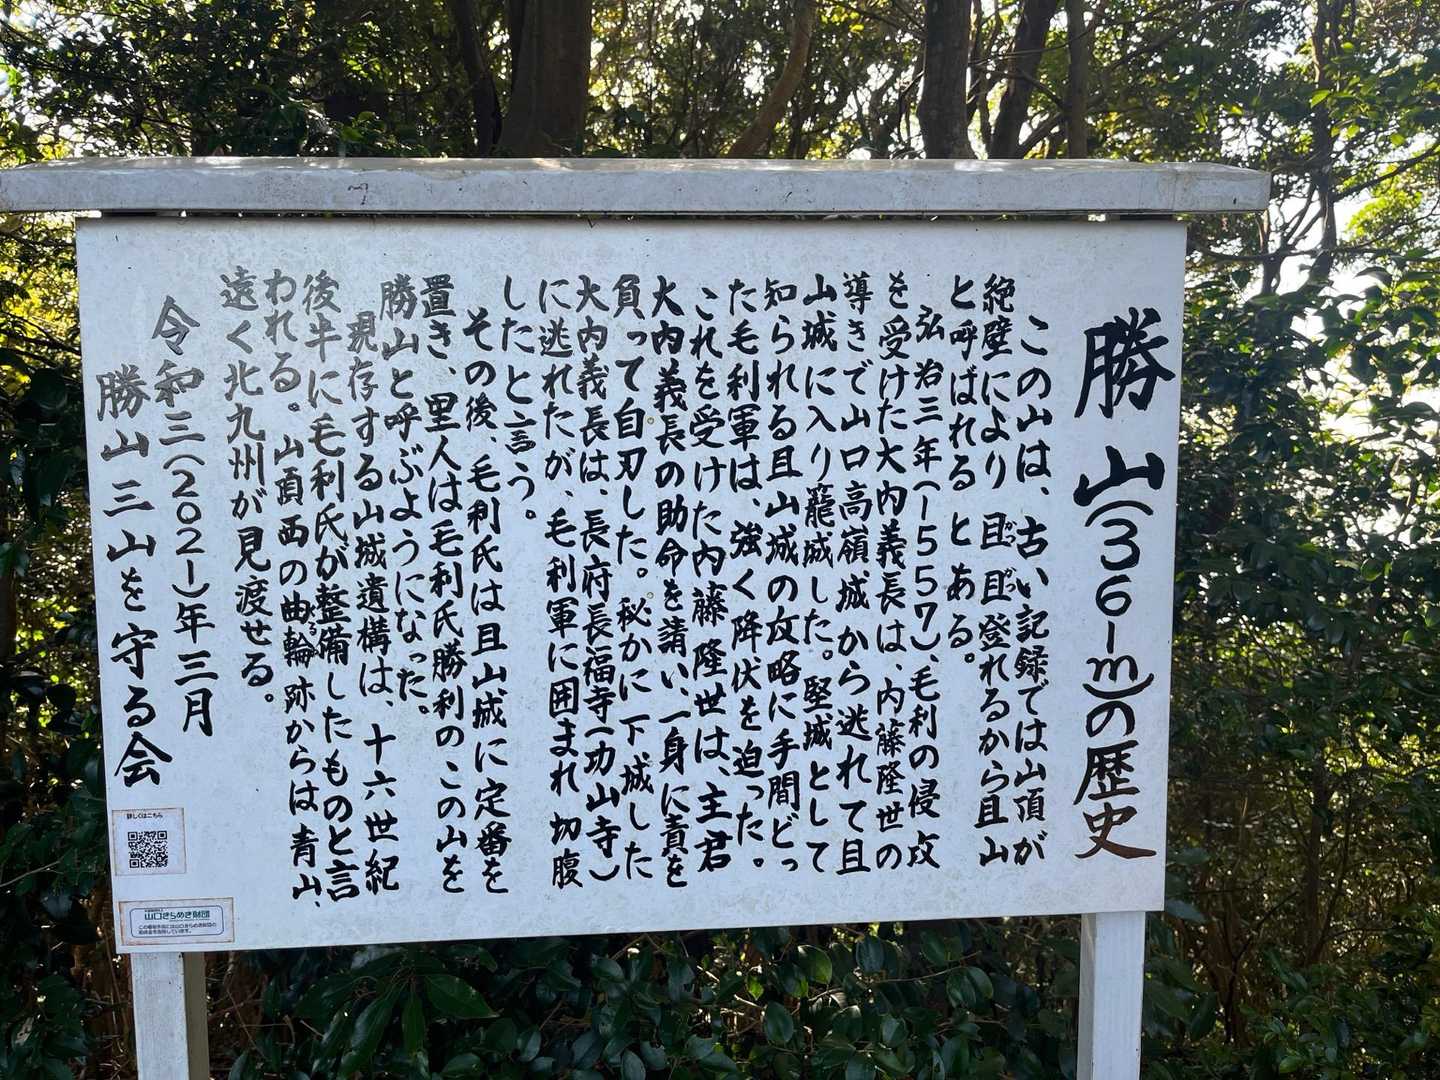 勝山(361m)の歴史
この山は、古い記録では山頂が
絶壁により且(かつ)且(がつ)登れるから且山
と呼ばれるとある。
弘治三年(1557)、毛利の侵攻
を受けた大内義長は、内藤隆世の
導きで山口高嶺城から逃れて且
山城に入り籠城した。堅城として
知られる且山城の攻略に手間どっ
た毛利軍は、強く降伏を迫った。
これを受けた内藤隆世は、主君
大内義長の助命を請い、一身に責を
負って自刃した。秘かに下城した
大内義長は、長府長福寺(功山寺)
に逃れたが、毛利軍に囲まれ切腹
したと言う。
その後、毛利氏は且山城に定番を
置き、里人は毛利氏勝利のこの山を
勝山と呼ぶようになった。
現存する山城遺構は、十六世紀
後半に毛利氏が整備したものと言
われる。山頂西の曲輪跡からは青山、
遠く北九州が見渡せる。
令和三(2021)年三月
勝山三山を守る会
詳しくはこちら
山口きらめき財団